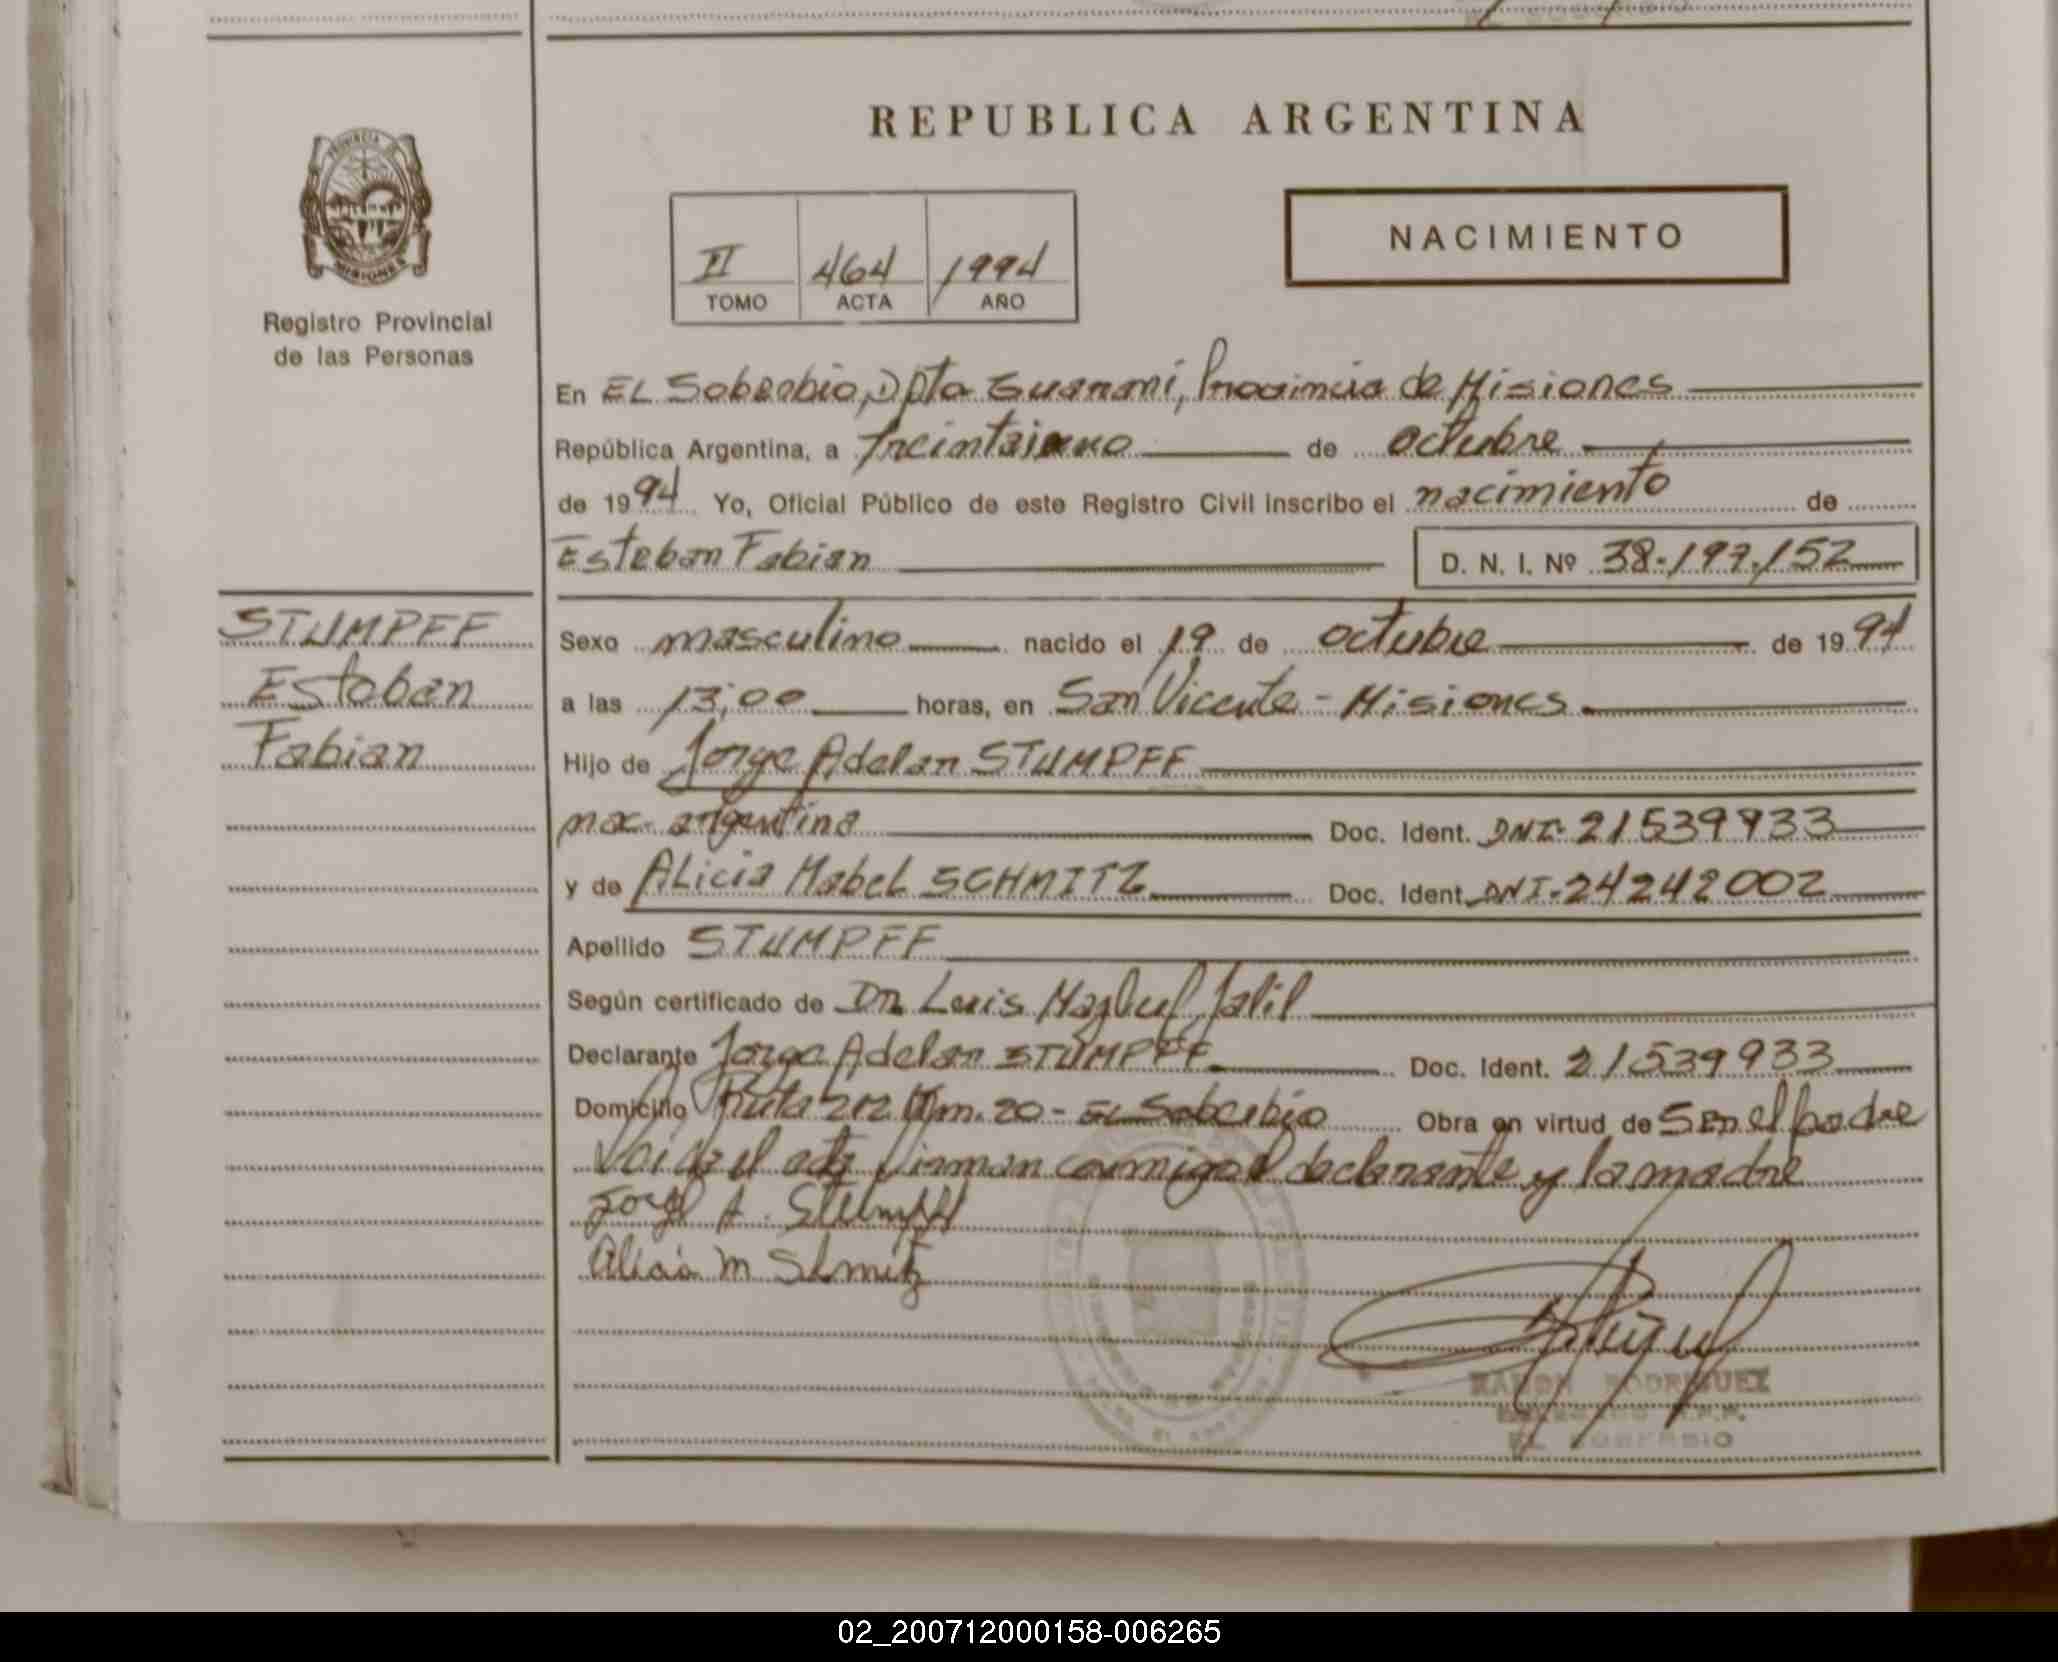 REPUBLICA ARGENTINA
PROVINCIA DE
MISIONES
Registro Provincial
de las Personas
II 464 1994
TOMO ACTA AÑO
NACIMIENTO
En EL Soberbio, Dpto Guaraní, Provincia de Misiones
República Argentina, a treintaiuno de octubre
de 1994 Yo, Oficial Público de este Registro Civil inscribo el nacimiento de
Esteban Fabian D. N. I. Nº 38.197.152
STUMPFF
Esteban
Fabian
Sexo masculino nacido el 19 de octubre de 1994
a las 13;00 horas, en San Vicente - Misiones
Hijo de Jorge Adelan STUMPFF
nac. argentina Doc. Ident. DNI. 21539933
y de ALicia Mabel SCHMITZ Doc. Ident. DNI. 24242002
Apellido STUMPFF
Según certificado de Dr. Luis Jalil
Declarante Jorge Adelan STUMPFF Doc. Ident. 21539933
Domicilio Ruta 212 Km. 20 - EL Soberbio Obra en virtud de Ser el padre
Leida el acta firman conmigo el declarante y la madre
Jorge A. Stumpff
Alicia M Schmitz
RAMON RODRIGUEZ
DELEGADO R.P.P.
EL SOBERBIO
02_200712000158-006265